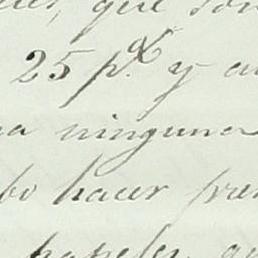 que son
25 p.% y a
a ninguna
bo hacer fren
papeles, qu